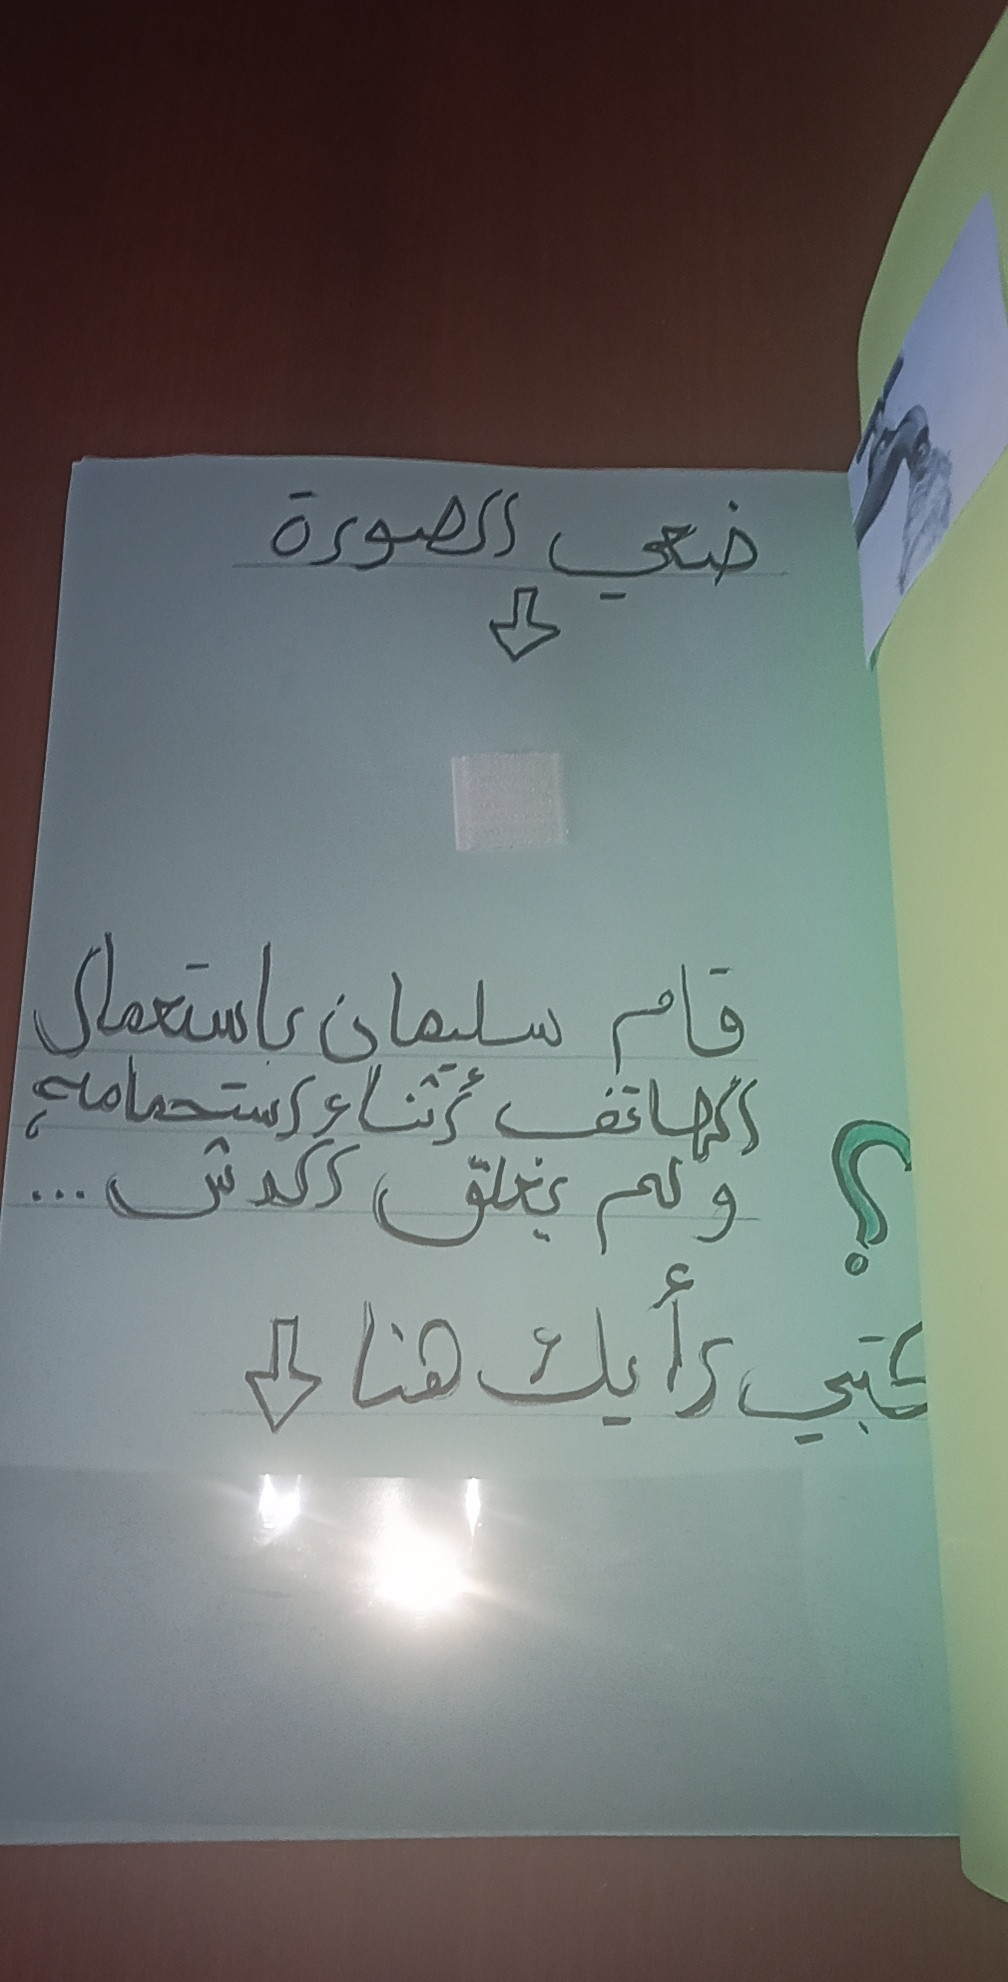 ضعي الصورة
قام سليمان باستعمال
الهاتف أثناء استحمامه،
ولم يغلق الدش...
؟
كتبي رأيك هنا